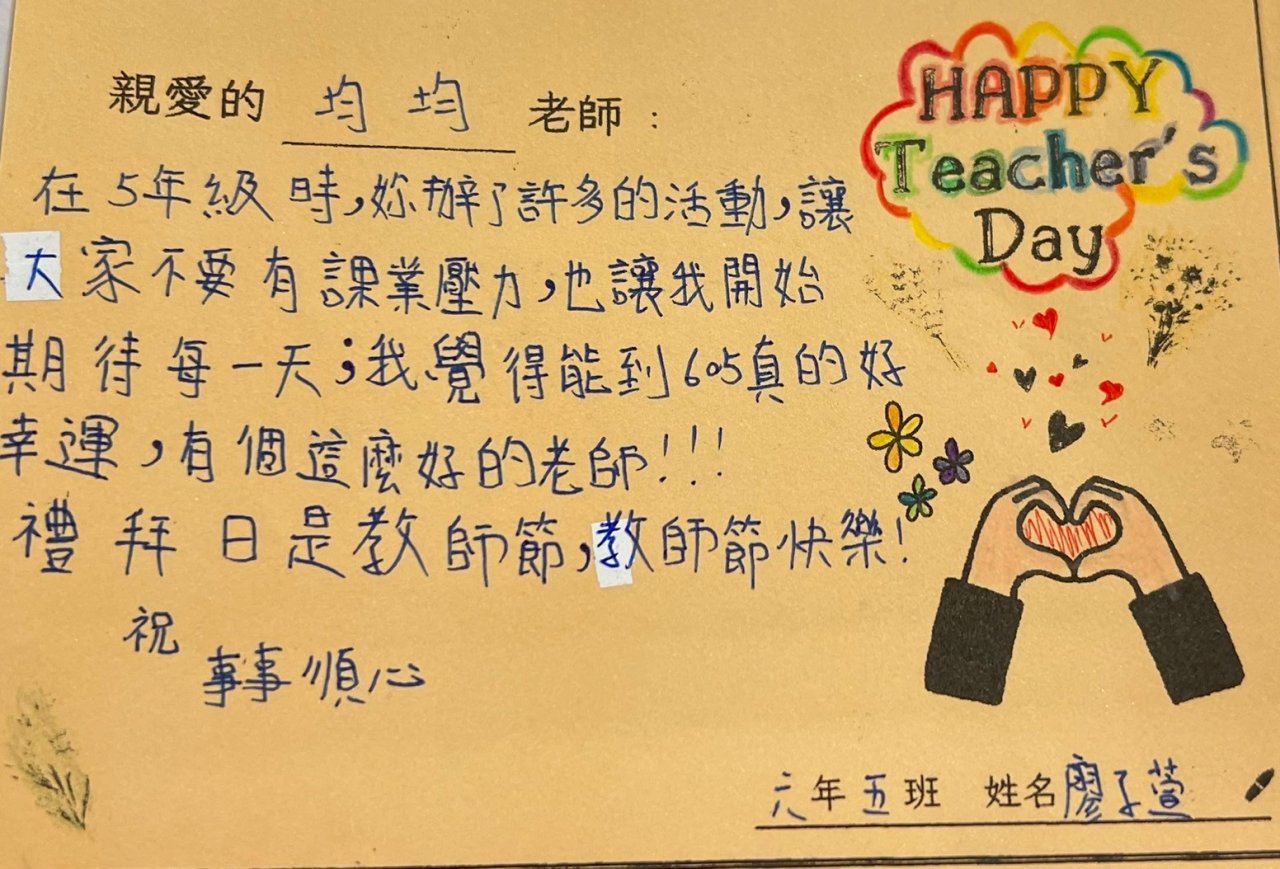 HAPPY
Teacher's
Day
親愛的 均均 老師：
在5年級時,妳辦了許多的活動,讓
大家不要有課業壓力,也讓我開始
期待每一天;我覺得能到605真的好
幸運,有個這麼好的老師!!!
禮拜日是教師節,教師節快樂!
祝
事事順心
六年五班 姓名廖子萱